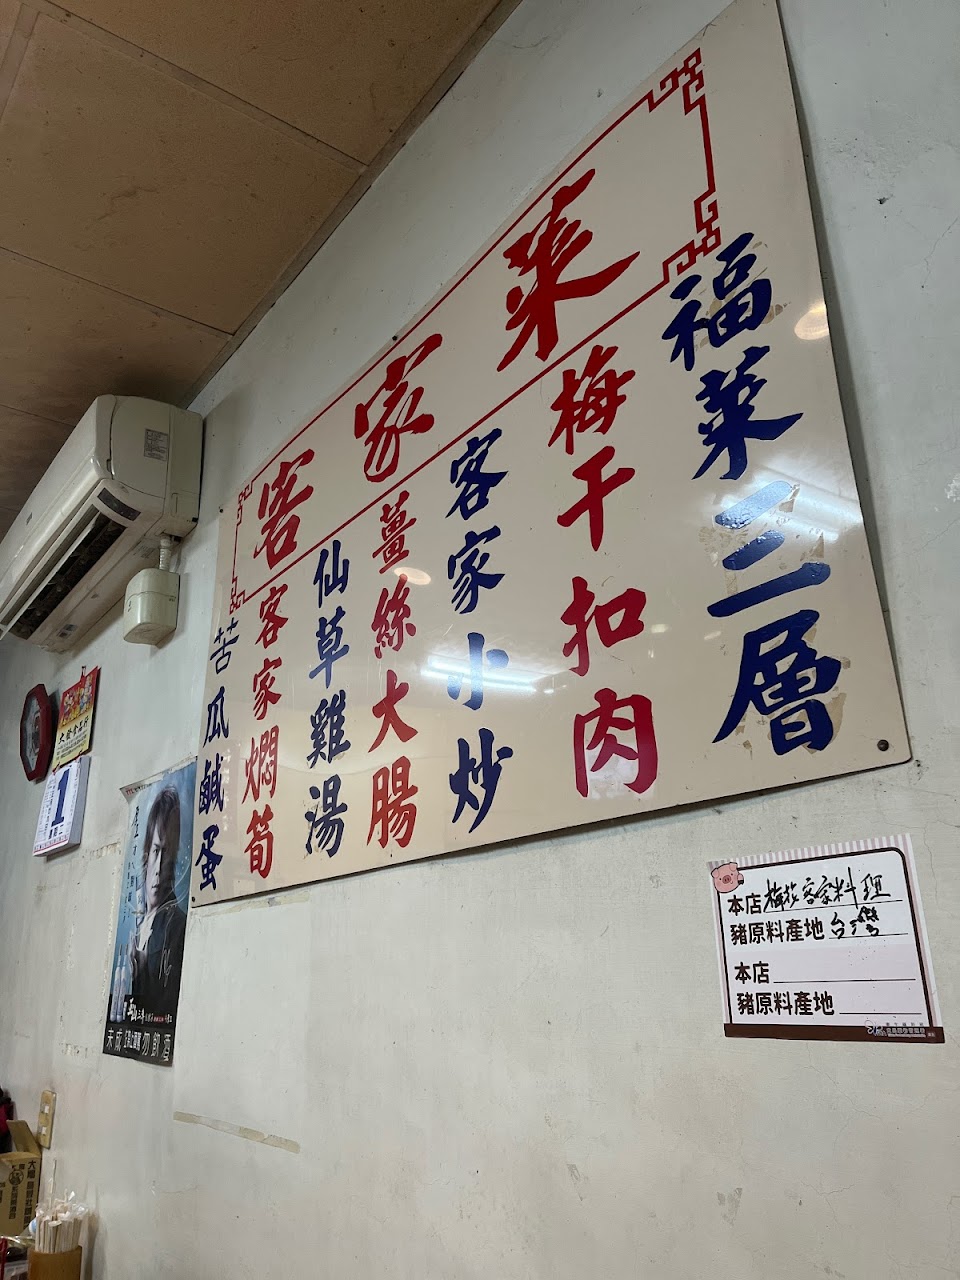 客家菜
福菜三層
梅干扣肉
客家小炒
薑絲大腸
仙草雞湯
客家燜筍
苦瓜鹹蛋
本店梅花客家料理
豬原料產地台灣
本店
豬原料產地
1
未成年請勿飲酒